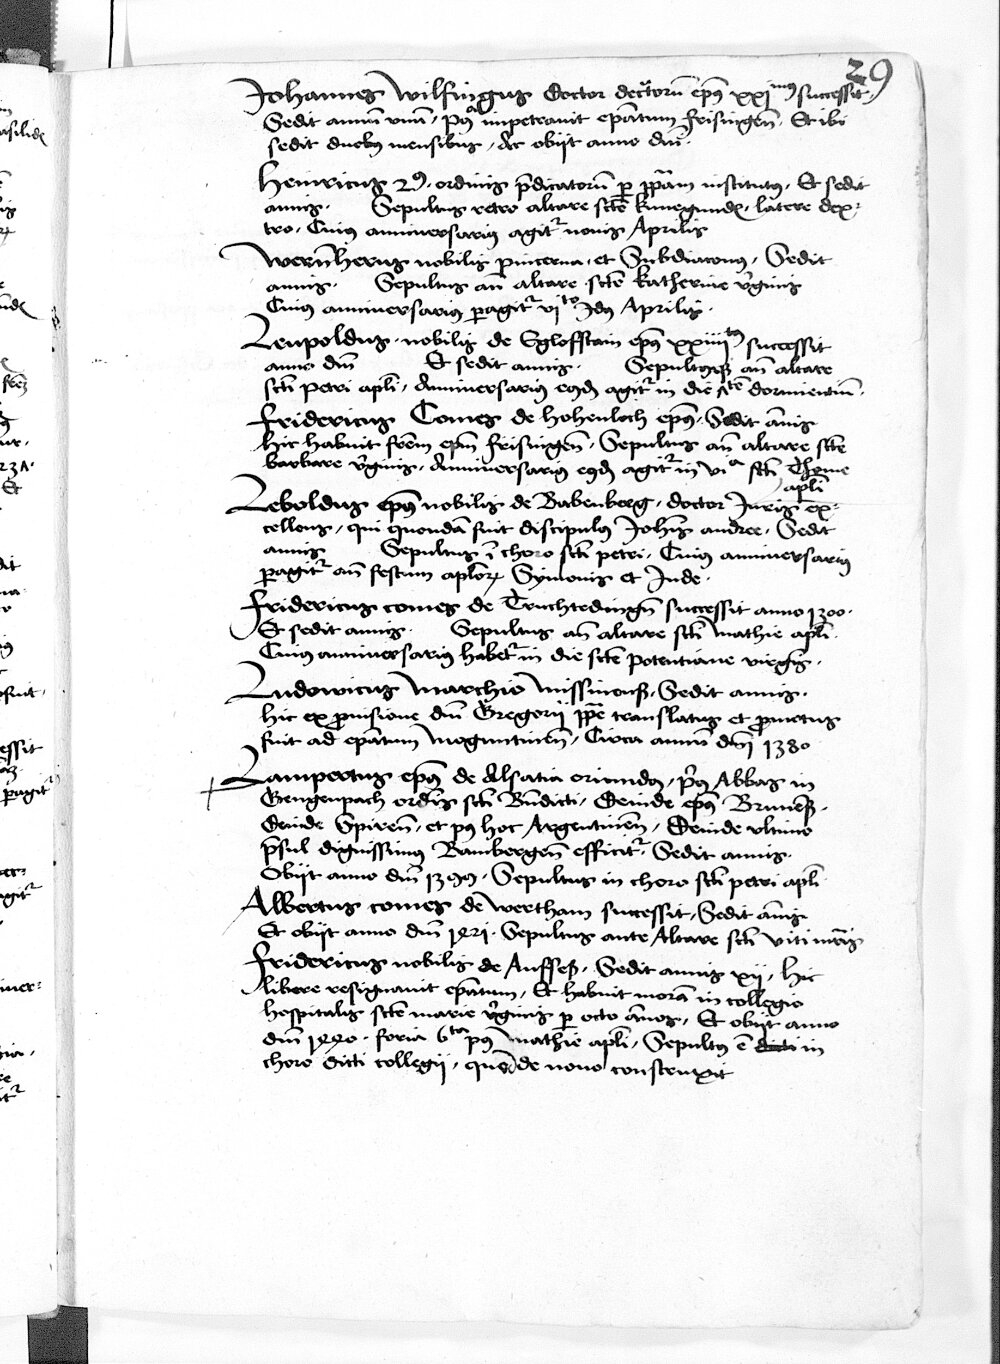 29
Johannes Wilfingus doctor decretorū ep̄us xxjmus successit.
Sedit annū unū, Posta impetravit ep̄atum frisingen̄. Et ibi
sedit duobus mensibus, Ac obijt anno dn̄i.
Heinricus 29. ordinis p̄dicatorū p pp̄am institutus. Et sedit
annis. Sepultus retro altare sctē kunegundis, latere dex-
tro, Cuius anniversarius agit̄ nonis Aprilis
Wernherus nobilis pincerna, et Subdiaconus, Sedit
annis. Sepultus an̄ altare sctē katherine v̄ginis
Cuius anniversarius peragit̄ vjto Idus Aprilis.
Leupoldus nobilis de Eglofstain ep̄us xxiiijtus successit
anno dn̄i Et sedit annis. Sepultusqꝫ an̄ altare
scti petri apl̄i, Anniversarius eius agit̄ in die dormientiū.
Fridericus Comes de hohenloch ep̄us. Sedit an̄is
hic habuit frēm ep̄m frisingen̄. Sepultus an̄ altare sctē
barbare v̄ginis, Anniversarius eius agit̄ in via scti Thome
apl̄i
Leboldus ep̄us nobilis de Babenberg, doctor Juris ex-
cellens, qui quondā fuit discipulus Joh̄is andree, Sedit
annis Sepultus ī choro scti petri, Cuius anniversarius
peragit̄ an̄ festum apl̄oꝝ Symonis et Jude.
Fridericus comes de Truchtedingn̄ successit anno 1300.
Et sedit annis. Sepultus an̄ altare scti Mathie apl̄i.
Cuius anniversarius habet̄ in die sctē potentiane virgīs.
Ludowicus marchio missinensꝫ, Sedit annis.
hic ex provisione dn̄i Gregorij pp̄e translatus et promotus
fuit ad ep̄atum moguntinen̄, Circa annū dn̄i 1380
Lampertus ep̄us de Alsatia oriundus, p̄us Abbas in
Gengenpach ordīs scti Bn̄dicti, Deinde ep̄us Brunenꝫ.
deinde Spiren̄, et post hoc Argentinen̄, Deinde ultimo
p̄sul dignissimus Bambergen̄ efficit̄. Sedit annis.
Obijt anno dn̄i 1399. Sepultus in choro scti petri apl̄i
Albertus comes de Wertham successit, Sedit an̄is
Et obijt anno dn̄i 1421. Sepultus ante Altare scti viti m̄ris
Fridericus nobilis de Aufseꝫ. Sedit annis xij, hic
libere resignavit ep̄atum, Et habuit morā in collegio
hospitalis sctē marie v̄ginis p octo an̄os, Et obijt anno
dn̄i 1440. feria 6ta post mathie apl̄i, Sepultus ē dicti in
choro dicti collegij, quod de novo construxit